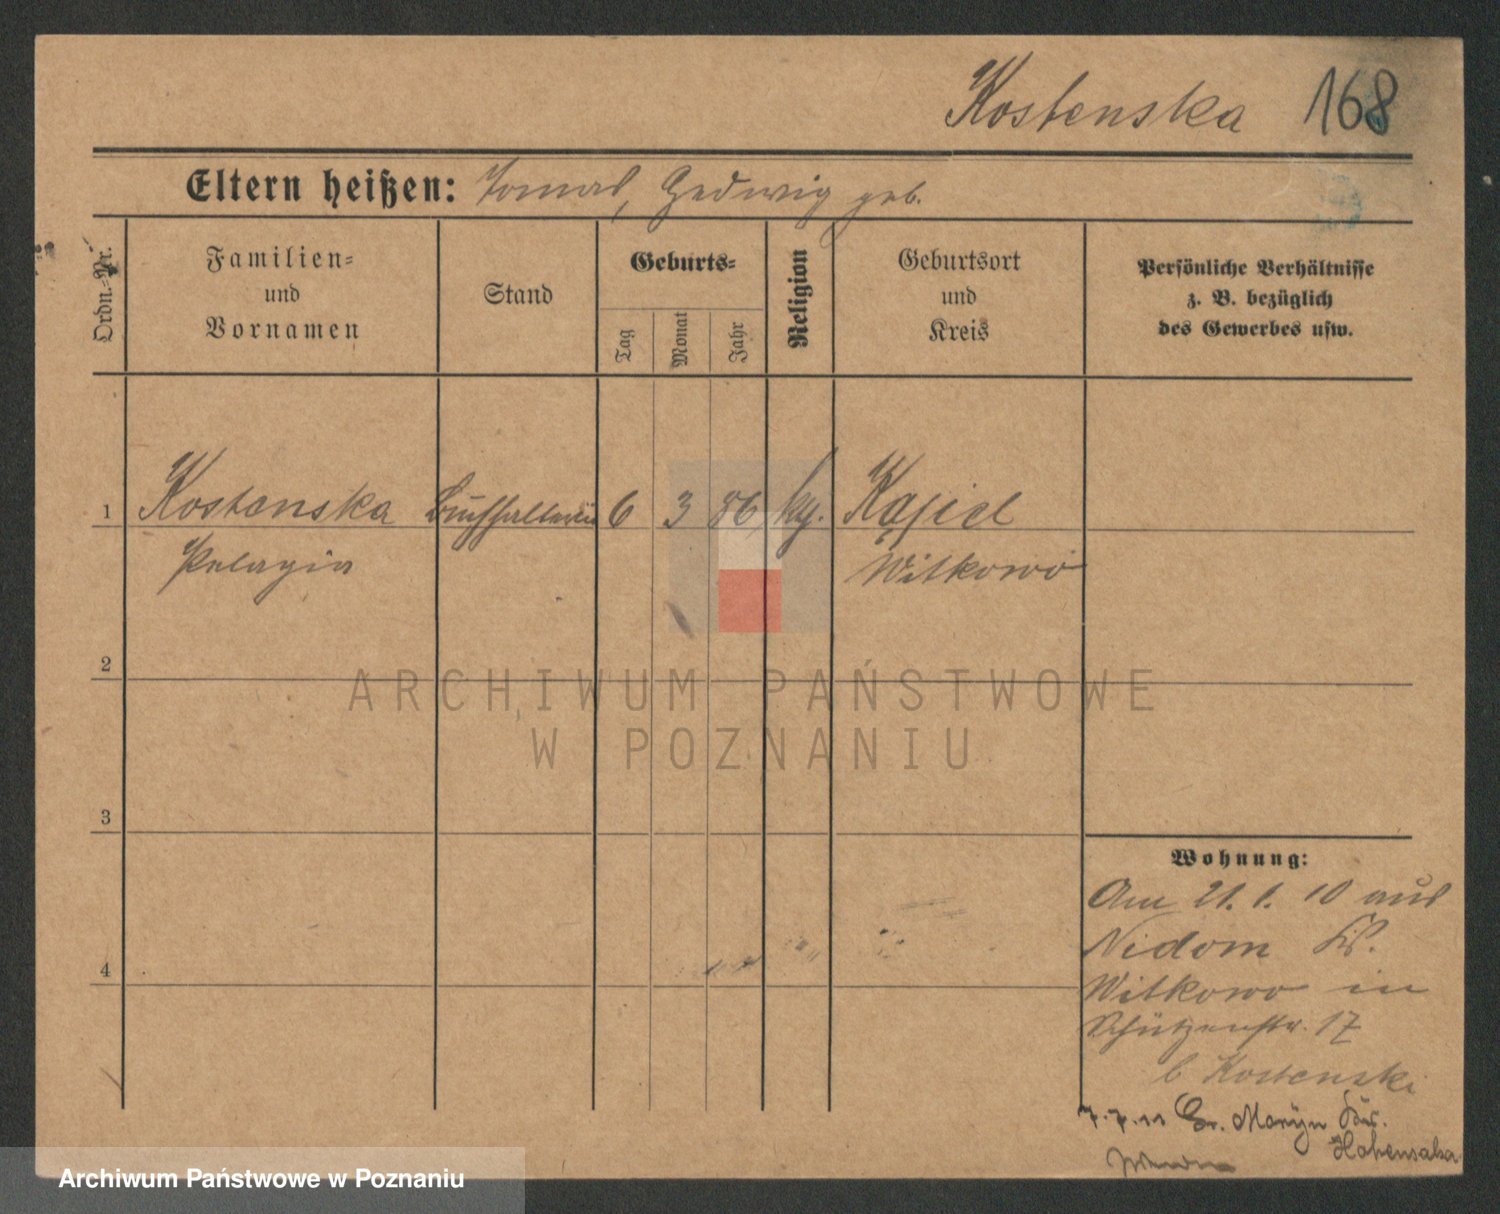 Kostenska 168
Eltern heißen: Tomas, Hedwig geb.
Ordn.-Nr.
Familien-
und
Vornamen
Stand
Geburts-
Tag
Monat
Jahr
Religion
Geburtsort
und
Kreis
Persönliche Verhältnisse
z. B. bezüglich
des Gewerbes usw.
1 Kostenska Buchhalterin 6 3 86 kg. Kąsiel
Pelagia Witkowo
2
ARCHIWUM PAŃSTWOWE
W POZNANIU
3
Wohnung:
Am 21. 1. 10 aus
Nidom Kr.
4
Witkowo in
Schützenstr. 17
b Kostenski
7.7.11 Gr. Kr.
Hohensalza
Archiwum Państwowe w Poznaniu